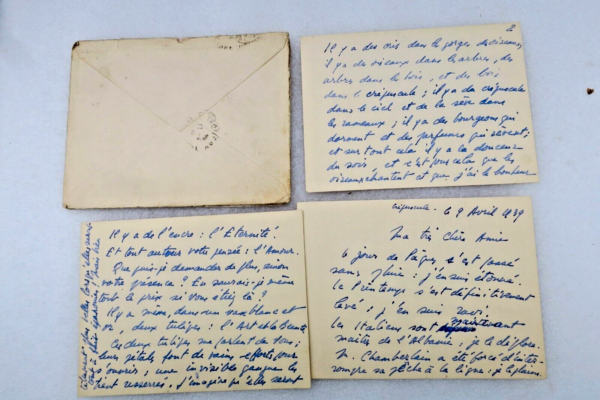 2
Il y a des voix dans les gorges des oiseaux,
il y a des oiseaux dans les arbres, des
arbres dans le bois, et des bois
dans le crépuscule ; il y a du crépuscule
dans le ciel et de la sève dans
les rameaux ; il y a des bourgeons qui
dorment et des parfums qui rêvent ;
et sur tout cela il y a la douceur
du soir, et c'est pour cela que les
oiseaux chantent et que j'ai le bonheur
Il y a de l'encre : l'Eternité.
Et tout autour votre pensée : l'Amour.
Que puis-je demander de plus, sinon
votre présence ? En saurais-je même
tout le prix si vous étiez là ?
Il y a même, dans un vase blanc et
deux tulipes : l'Art et la Beauté
Les deux tulipes me parlent de vous ;
leurs pétales font de vains efforts pour
s'ouvrir, une invisible gangue les
tient resserrés. J'imagine qu'elles seront
plus belles lorsqu'elles seront
tout à fait épanouies
Crépuscule. le 9 Avril 1939
Ma très chère Amie
Le jour de Pâques s'est passé
sans pluie : j'en suis étonné.
Le Printemps s'est définitivement
levé : j'en suis ravi.
Les Italiens sont maintenant
maîtres de l'Albanie, je le déplore.
M. Chamberlain a été forcé d'inter-
rompre sa pêche à la ligne : je le plains.